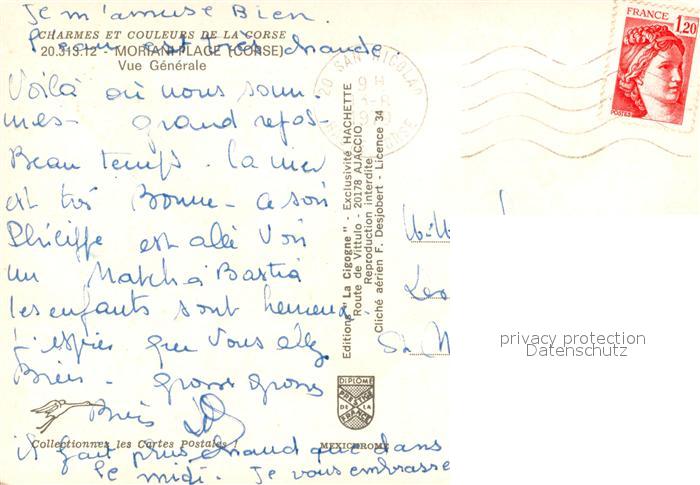 Je m'amuse Bien.
CHARMES ET COULEURS DE LA CORSE
l'eau est très chaude
20.313.12 - MORIANI-PLAGE (CORSE)
Vue Générale
Voilà où nous som-
mes - grand repos -
Beau temps - la mer
est très Bonne - ce soir
Philippe est allé voir
un Match à Bastia
les enfants sont heureux.
J'espère que vous allez
Bien - grosses grosses
Bises
Collectionnez les Cartes Postales !
il fait plus chaud que dans
le midi. Je vous embrasse
Editions "La Cigogne" - Exclusivité HACHETTE
Route de Vittulo - 20178 AJACCIO
Reproduction interdite
Cliché aérien F. Desjobert - Licence 34
DIPLOME
PRESTIGE
DE LA
FRANCE
MEXICHROME
20 SAN NICOLAO
9 H
CORSE
FRANCE
1,20
POSTES
Les
privacy protection
Datenschutz